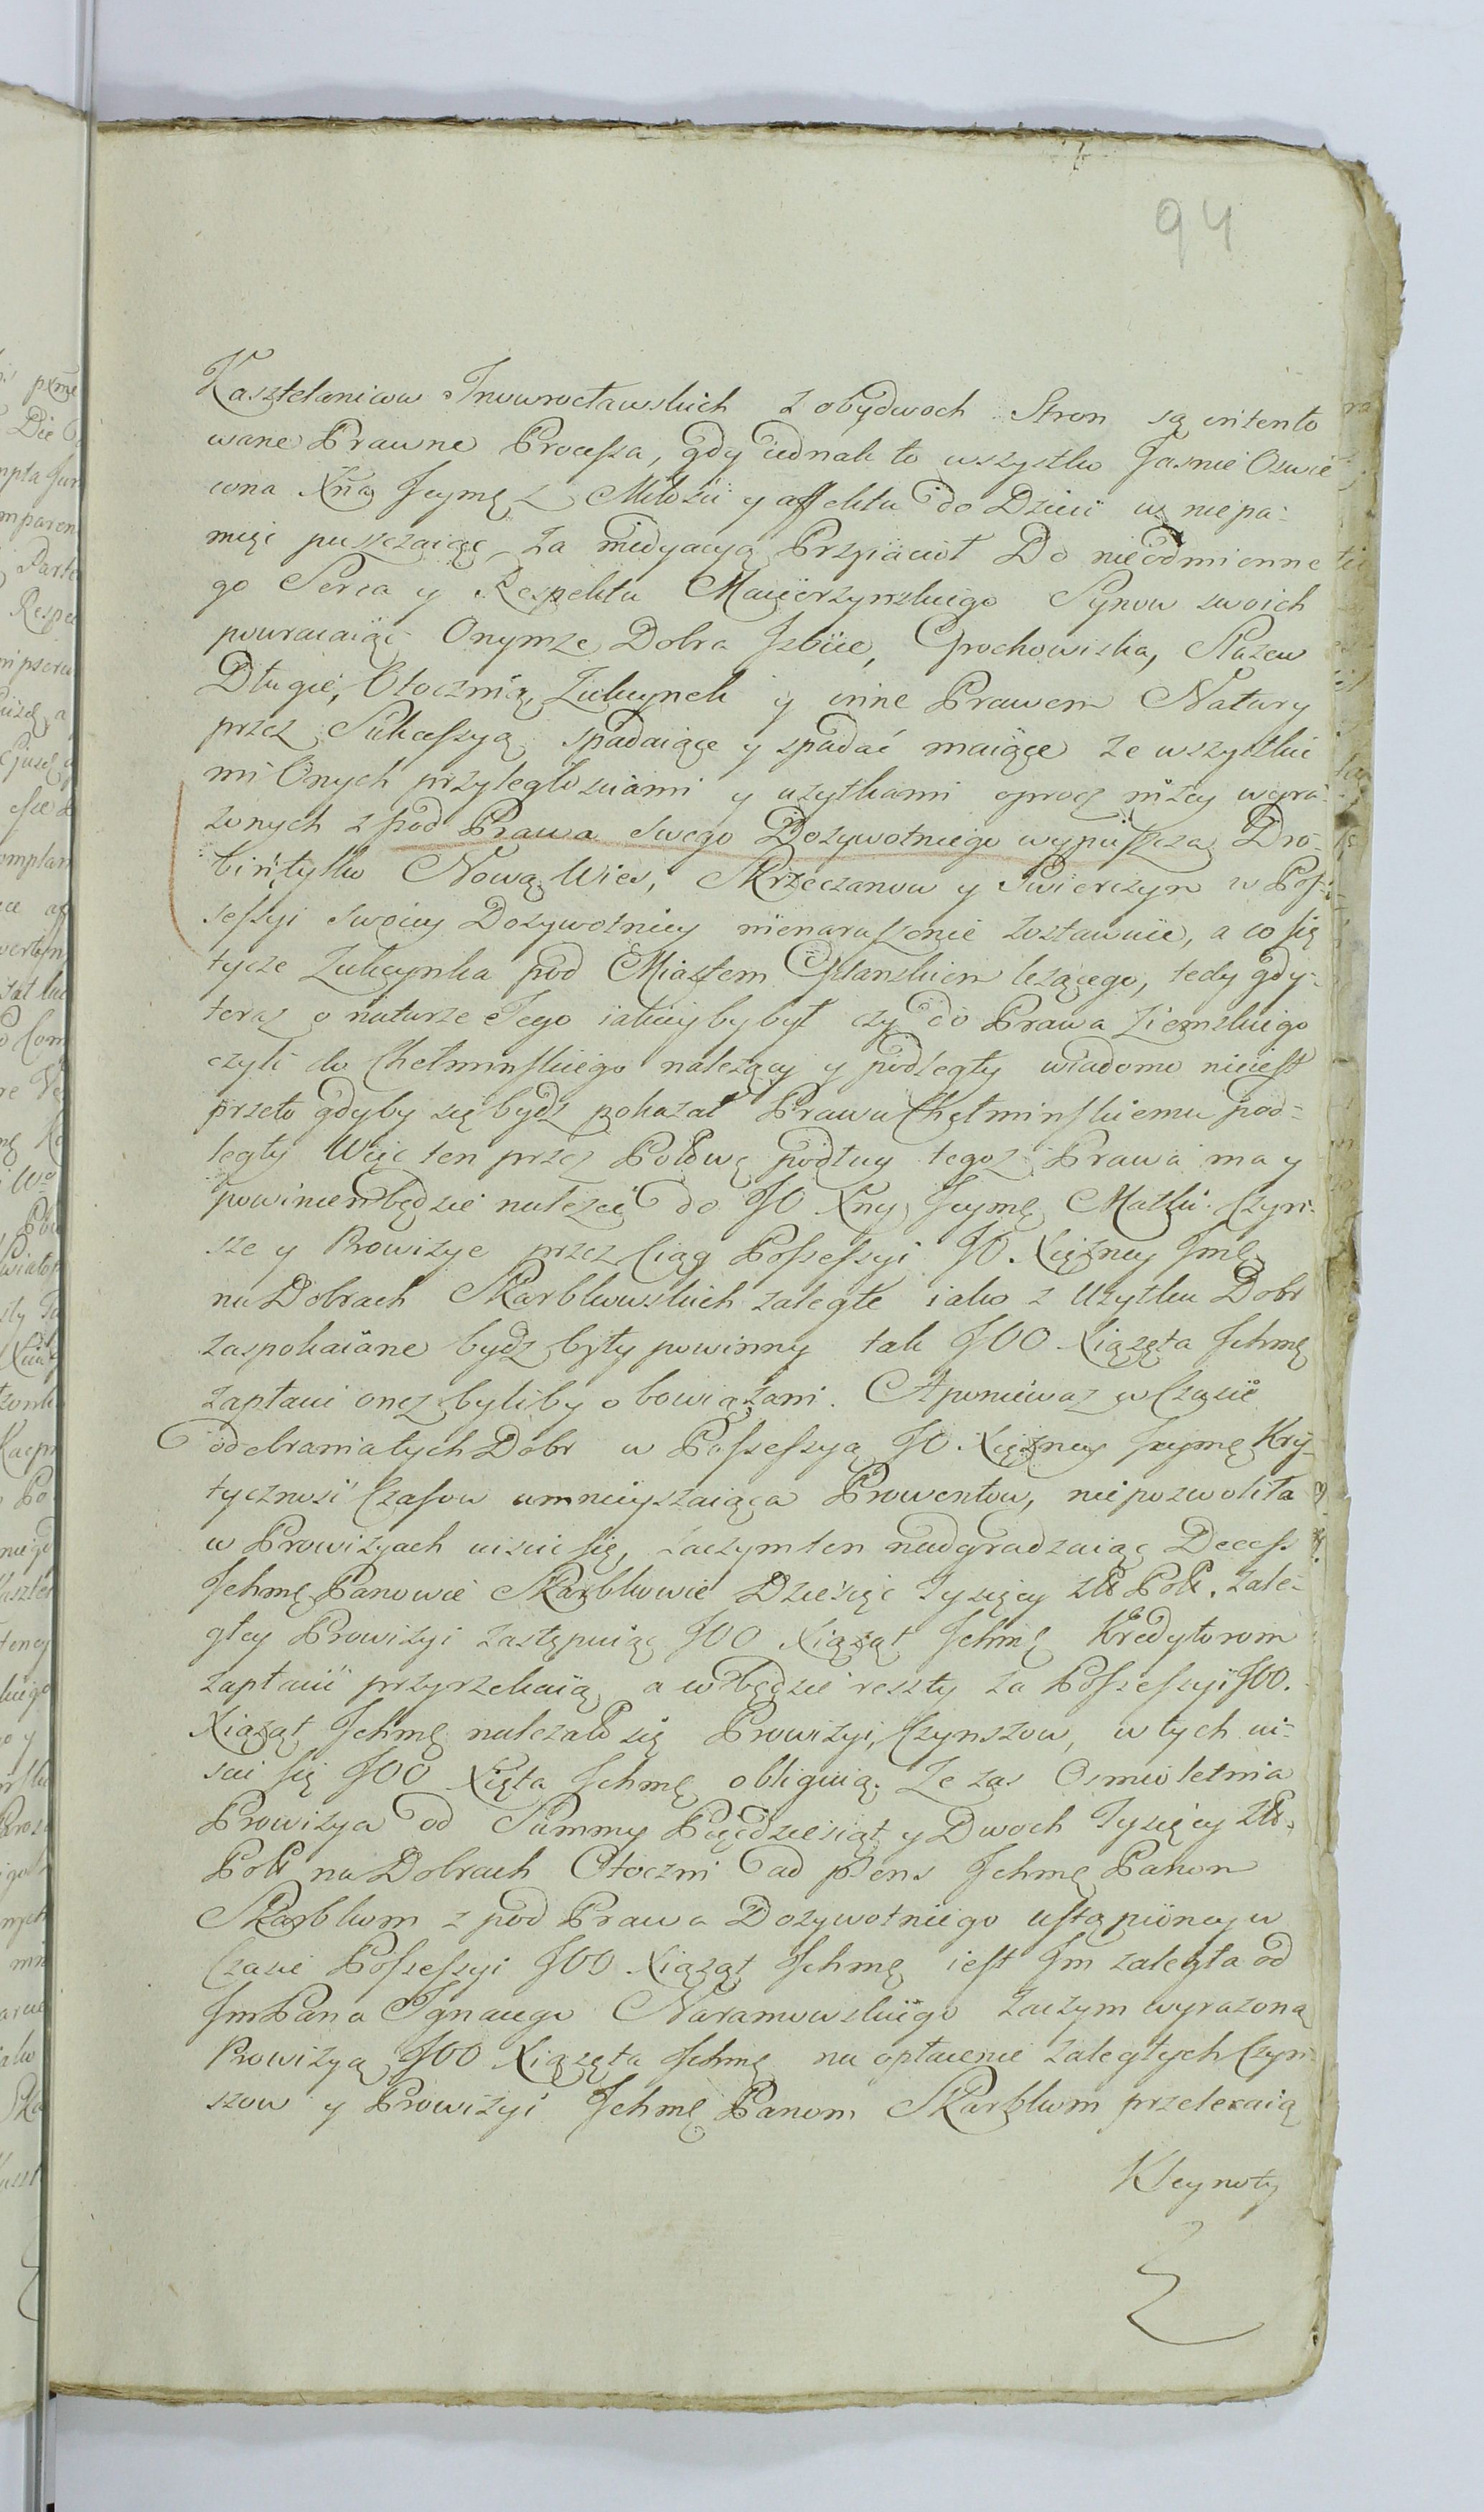 94
Kasztelanicow Inowrocławskich z obydwoch Stron są intento
wane Prawne Processa, gdy iednak to wszystko Jasnie Oswie
cona Xna Jeymę z Miłości y affektu do Dzieci w niepa-
mięć puszczaiąc za medyacyą Przyiacioł Do nieodmienne
go Serca y Respektu Macierzynskiego Synow swoich
powracaiąc Onymze Dobra Izbice, Grochowiska, Słazew
Długie, Otocznią, Zukcynek y inne Prawem Natury
przez Sukcessyą spadaiące y spadać maiące ze wszystkie
mi Onych przyległosciami y uzytkami oprocz niżey wyra
zonych z pod Prawa Swego Dozywotniego wypuszcza Dro-
bin tylko Nową Wies, Skrzeczanow y Swierczyn w Pos-
sessyi swoiey Dozywotniey nienaruszenie zostawuie, a co się
tycze Zukcynka pod Miastem Gdanskiem leżącego, tedy gdy
teraz o naturze Jego iakieyby był czy do Prawa Ziemskiego
czyli do Chełminskiego nalezący y podległy wiadomo nieiest
przeto gdyby się bydz pokazał Prawu Chełminskiemu pod-
legły Więc ten przez Połowę podług tegoż Prawa ma y
powinien będzie należeć do JO Xny Jeymę Matki. Czyn-
sze y Prowizye przez Ciąg Possessyi JO. Xiężney Jmę
na Dobrach Skarbkowskich zaległe iako z Uzytku Dobr
zaspokaiane bydz były powinny tak JOO Xiązęta Ichmę
zapłacić onez byliby obowiązani. A ponieważ w Czasie
odebrania tych Dobr w Possessyą JO. Xiężney Jeymę Kry-
tycznosć Czasow umnieyszaiąca Prowentow, nie pozwoliła
w Prowizyach uiscic się, zaczym ten nadgradzaiąc Decess
Ichmę Panowie Skarbkowie Dziesięc Tysięcy Złł Polł. zale-
głey Prowizyi zastępuiąc JOO Xiążąt Ichmę Kredytorom
zapłacić przyrzekaią a co będzie reszty za Possessyi JOO.
Xiążąt Ichmę należało się Prowizyi, Czynszow, w tych ui-
scic się JOO Xięta Ichmę obliguią. Ze zas Osmioletnia
Prowizya od Summy Pięćdziesiąt y Dwoch Tysięcy Złł.
Polł na Dobrach Otoczni ad psens Ichmę Panom
Skarbkom z pod Prawa Dozywotniego ustąpioney w
Czasie Possessyi JOO Xiążąt Ichmę iest Im zaległa od
JmPana Ignacego Naramowskiego zaczym wyrazoną
Prowizyą JOO Xiązęta Ichmę na opłacenie zaległych Czyn-
szow y Prowizyi Ichmę Panom Skarbkom przelewaią
Kleynoty